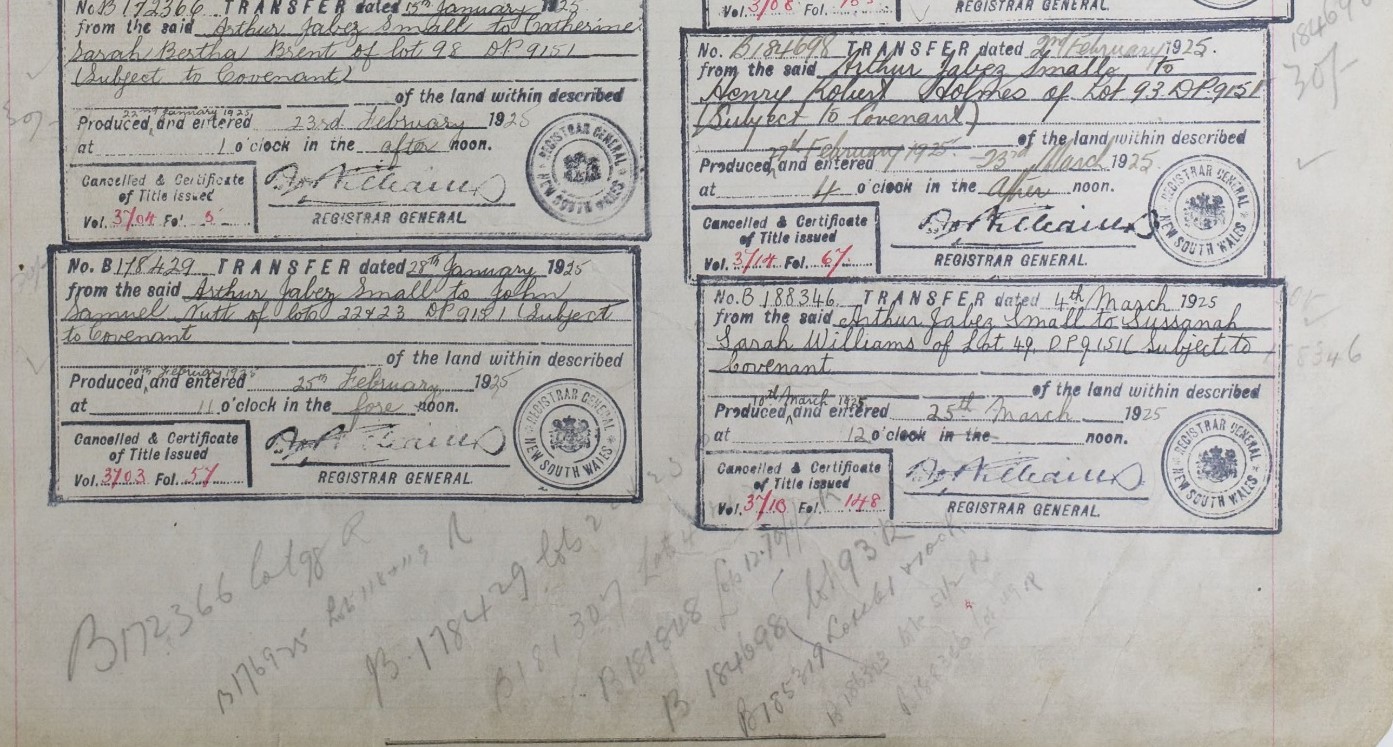 No. B 172366 TRANSFER dated 15th January 1925
from the said Arthur Jabez Small to Catherine
Sarah Bertha Brent of lot 98 DP 9151
(Subject to Covenant)
of the land within described
22nd January 1925
Produced, and entered 23rd February 1925
at 1 o'clock in the after noon.
Cancelled & Certificate
of Title issued
Vol. 3704 Fol. 5
REGISTRAR GENERAL.
REGISTRAR GENERAL NEW SOUTH WALES
No. B 178429 TRANSFER dated 28th January 1925
from the said Arthur Jabez Small to John
Samuel Nutt of lots 22 & 23 DP 9151 (Subject
to Covenant
of the land within described
10th February 1925
Produced, and entered 25th February 1925
at 11 o'clock in the fore noon.
Cancelled & Certificate
of Title Issued
Vol. 3703 Fol. 57
REGISTRAR GENERAL.
REGISTRAR GENERAL NEW SOUTH WALES
Vol. 3708 Fol.
REGISTRAR GENERAL.
No. B184698 TRANSFER dated 2nd February 1925.
from the said Arthur Jabez Small to
Henry Robert Holmes of Lot 93 DP 9151
(Subject to Covenant)
of the land within described
February 1925.
Produced, and entered 23rd March 1925
at 4 o'clock in the after noon.
Cancelled & Certificate
of Title issued
Vol. 3714 Fol. 67
REGISTRAR GENERAL.
REGISTRAR GENERAL NEW SOUTH WALES
184698
30/-
No. B 188346 TRANSFER dated 4th March 1925
from the said Arthur Jabez Small to Sussanah
Sarah Williams of Lot 49. DP 9151 (Subject to
Covenant
of the land within described
10th March 1925
Produced, and entered 25th March 1925
at 12 o'clock in the noon.
Cancelled & Certificate
of Title issued
Vol. 3710 Fol. 148
REGISTRAR GENERAL.
REGISTRAR GENERAL NEW SOUTH WALES
8346
B172366 lot 98 R
B176925 R
B. 178429 lots 2
B181307 Lots 4
B181848
B 184698 lot 93 R
B185319